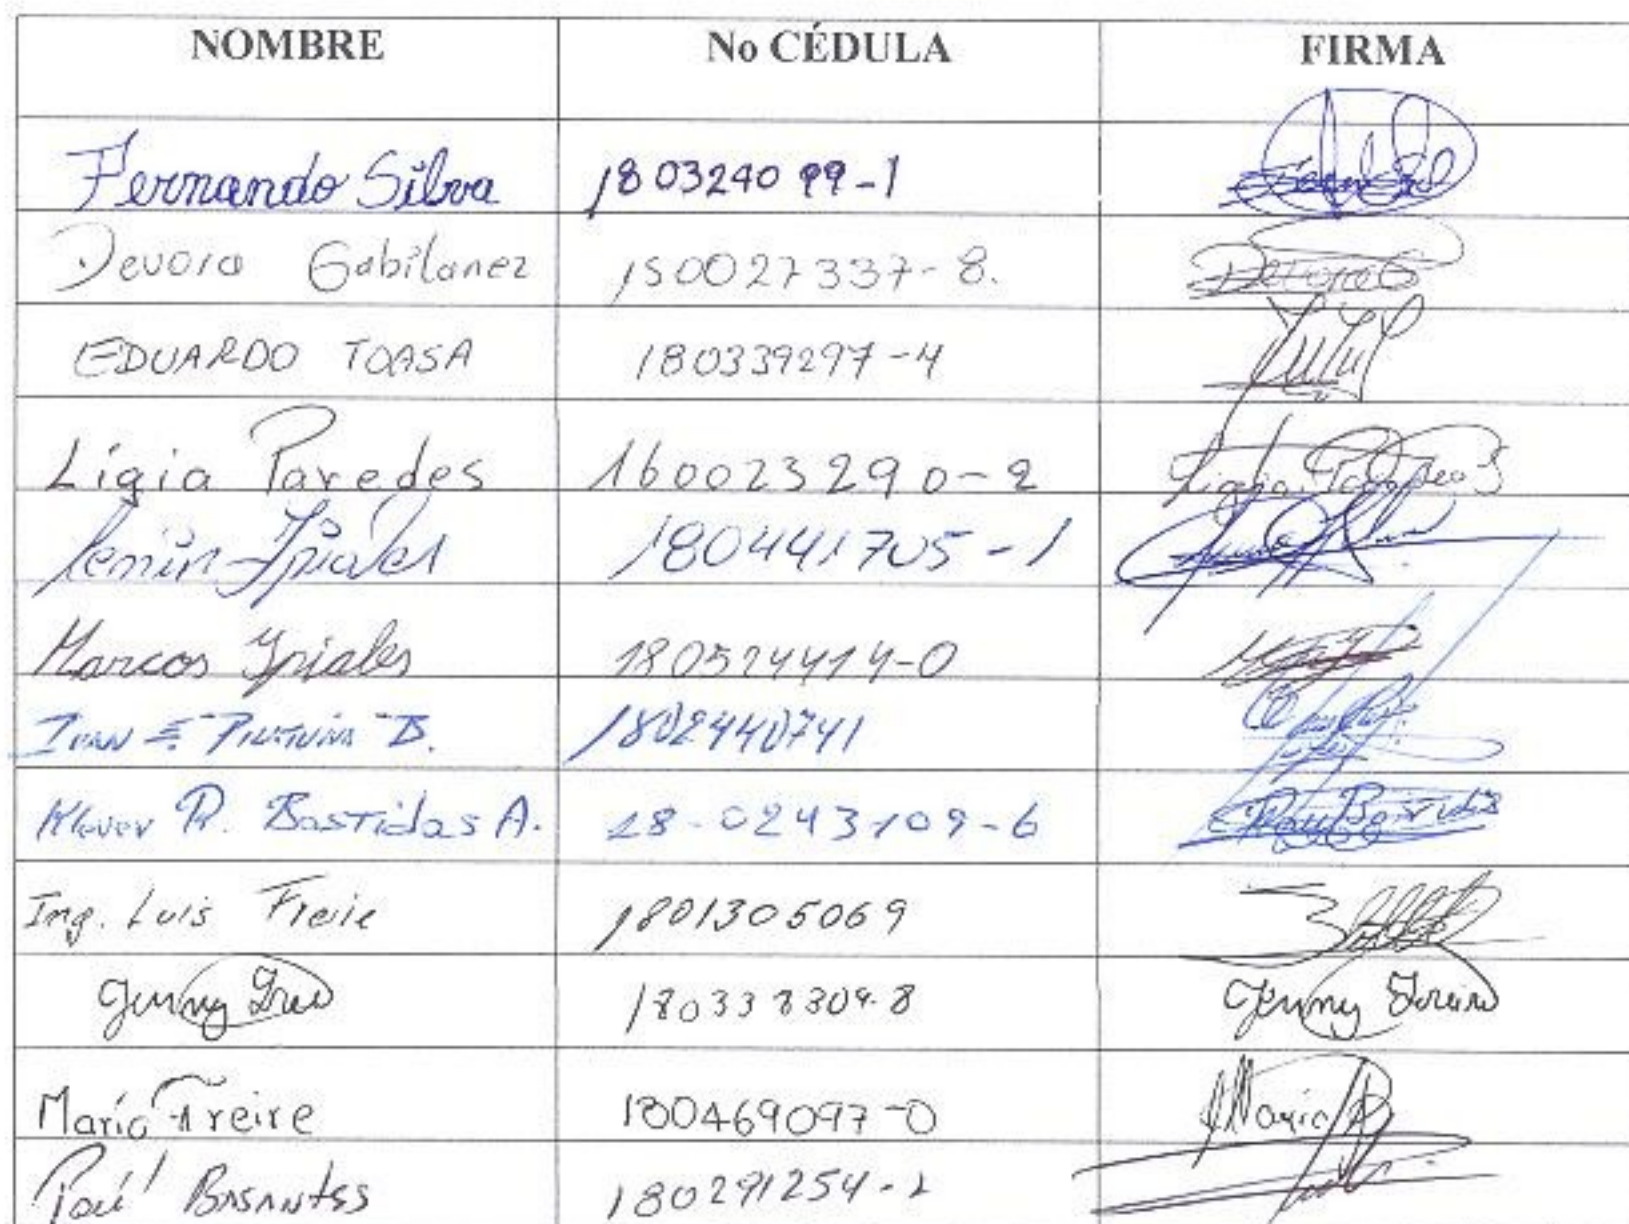 NOMBRE No CÉDULA FIRMA
Fernando Silva 180324099-1
Devora Gabilanez 150027337-8. Devora G
EDUARDO TOASA 180339297-4
Ligia Paredes 160023290-2 Ligia Paredes
Lenin Ipiales 180441705-1
Marcos Ypiales 180524414-0
E. B. 1802440741
Klever R. Bastidas A. 18-0243109-6 Bastidas
Ing. Luis Freire 1801305069
Jenny 18033 Jenny Freire
Mario Freire 180469097-0 Mario
Paúl BASANTES 180291254-2